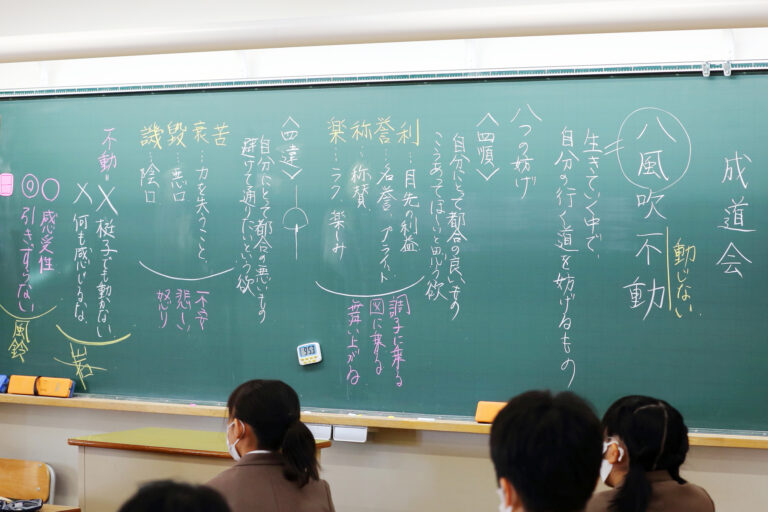 成道会
八風吹不動
動じない
生きていく中で、
自分の行く道を妨げるもの
八つの妨げ
〈四順〉
自分にとって都合の良いもの
こうあってほしいと思う欲
利…目先の利益
誉…名誉、プライド
称…称賛
楽…ラク、楽しみ
調子に乗る
図に乗る
舞い上がる
〈四違〉
自分にとって都合の悪いもの
避けて通りたいという欲
苦
衰…力を失うこと、
毀…悪口
譏…陰口
不安
悲しい
怒り
不動
× 梃子でも動かない
× 何も感じない
岩
○ 感受性
◎ 引きずらない
風鈴